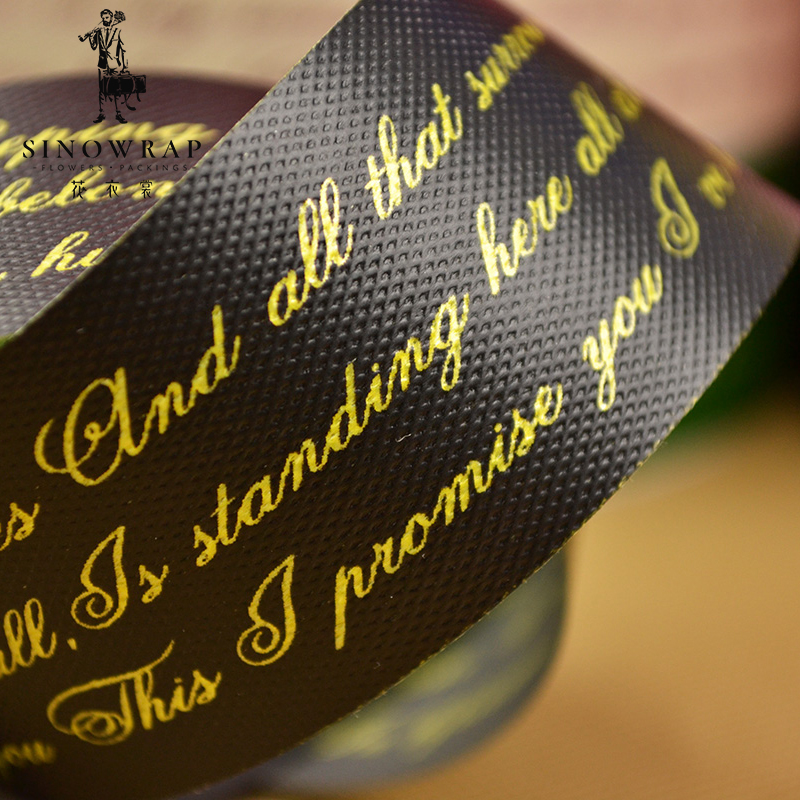 SINOWRAP
FLOWERS • PACKINGS
花衣裳
es And all that
all, Is standing here all
you This I promise you I